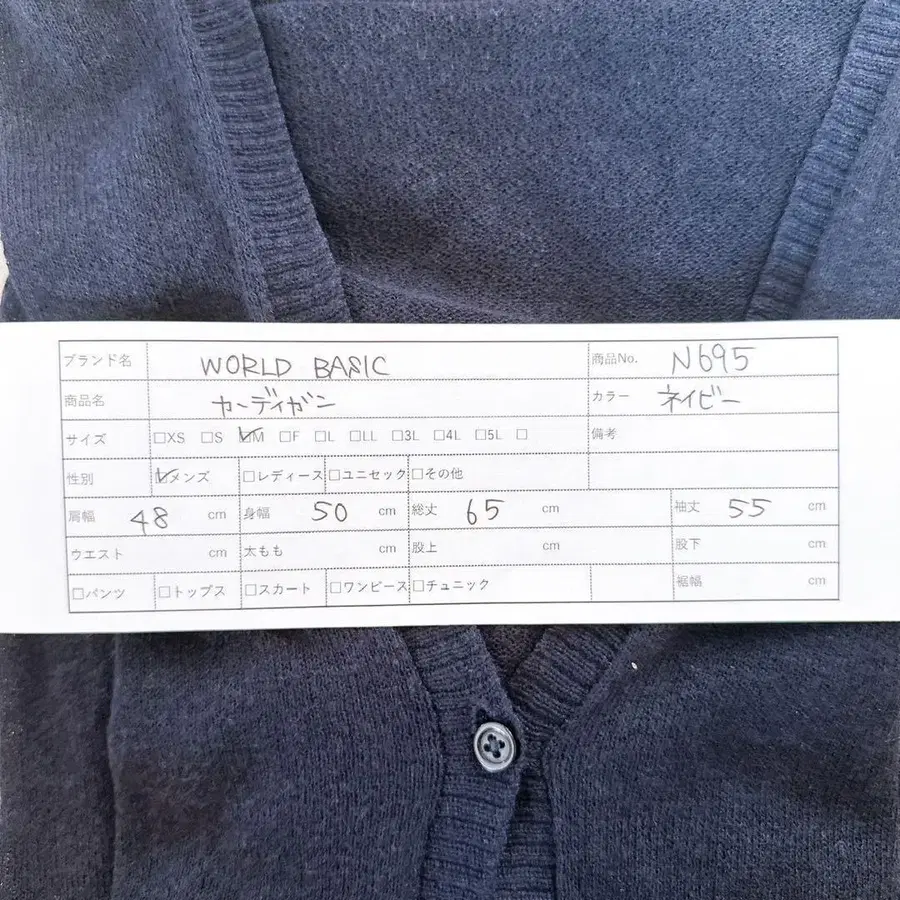 ブランド名 WORLD BASIC 商品No. N695
商品名 カーディガン カラー ネイビー
サイズ □XS □S ☑M □F □L □LL □3L □4L □5L □ 備考
性別 ☑メンズ □レディース □ユニセック □その他
肩幅 48 cm 身幅 50 cm 総丈 65 cm 袖丈 55 cm
ウエスト cm 太もも cm 股上 cm 股下 cm
□パンツ □トップス □スカート □ワンピース □チュニック 裾幅 cm